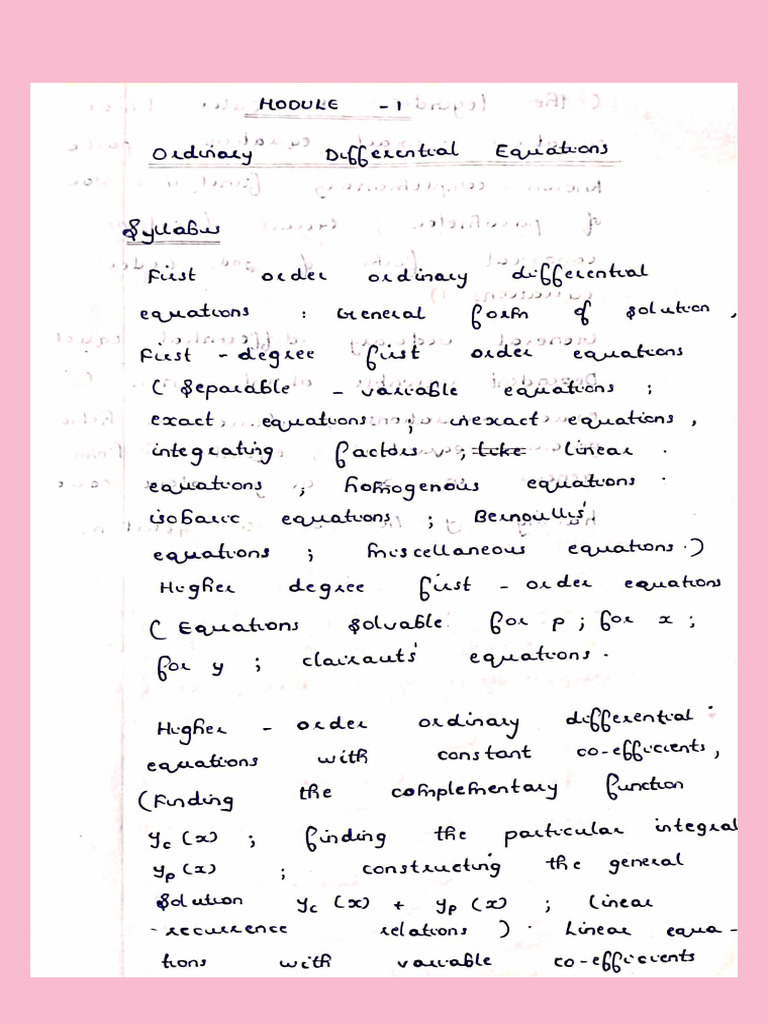 MODULE - 1
Ordinary Differential Equations
Syllabus
First order ordinary differential
equations : General form of solution,
First - degree first order equations
( Separable - variable equations ;
exact equations ; inexact equations,
integrating factors ; like linear
equations ; homogenous equations
isobaric equations ; Bernoullis'
equations ; miscellaneous equations.)
Higher degree first - order equations
( Equations solvable for p ; for x ;
for y ; clairauts' equations.
Higher - order ordinary differential
equations with constant co-efficients,
(Finding the complementary function
yc (x) ; finding the particular integral
yp (x) ; constructing the general
solution yc (x) + yp (x) ; linear
-recurrence relations ) . Linear equa -
tions with variable co-efficients